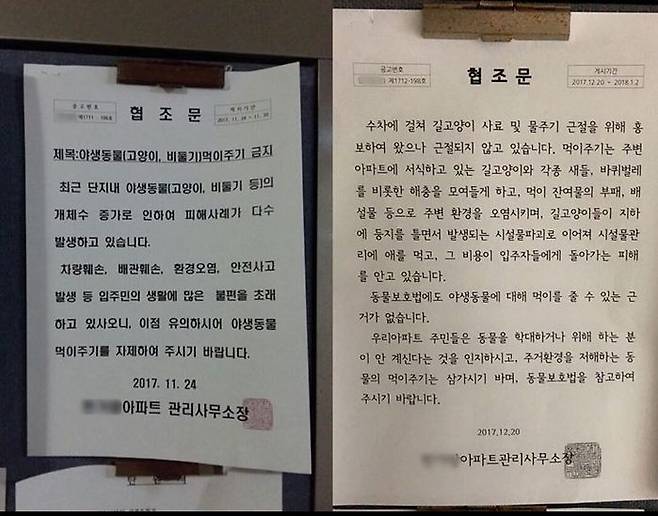 공고번호
제1711 - 196호
협 조 문
게시기간
2017. 11. 24 ~ 11. 30
제목:야생동물(고양이, 비둘기)먹이주기 금지
최근 단지내 야생동물(고양이, 비둘기 등)의
개체수 증가로 인하여 피해사례가 다수
발생하고 있습니다.
차량훼손, 배관훼손, 환경오염, 안전사고
발생 등 입주민의 생활에 많은 불편을 초래
하고 있사오니, 이점 유의하시어 야생동물
먹이주기를 자제하여 주시기 바랍니다.
2017. 11. 24
아파트 관리사무소장
공고번호
제1712-198호
협 조 문
게시기간
2017.12.20 ~ 2018.1.2
수차에 걸쳐 길고양이 사료 및 물주기 근절을 위해 홍
보하여 왔으나 근절되지 않고 있습니다. 먹이주기는 주변
아파트에 서식하고 있는 길고양이와 각종 새들, 바퀴벌레
를 비롯한 해충을 모여들게 하고, 먹이 잔여물의 부패, 배
설물 등으로 주변 환경을 오염시키며, 길고양이들이 지하
에 둥지를 틀면서 발생되는 시설물파괴로 이어져 시설물관
리에 애를 먹고, 그 비용이 입주자들에게 돌아가는 피해
를 안고 있습니다.
동물보호법에도 야생동물에 대해 먹이를 줄 수 있는 근
거가 없습니다.
우리아파트 주민들은 동물을 학대하거나 위해 하는 분
이 안 계신다는 것을 인지하시고, 주거환경을 저해하는 동
물의 먹이주기는 삼가시기 바며, 동물보호법을 참고하여
주시기 바랍니다.
2017.12.20
아파트관리사무소장